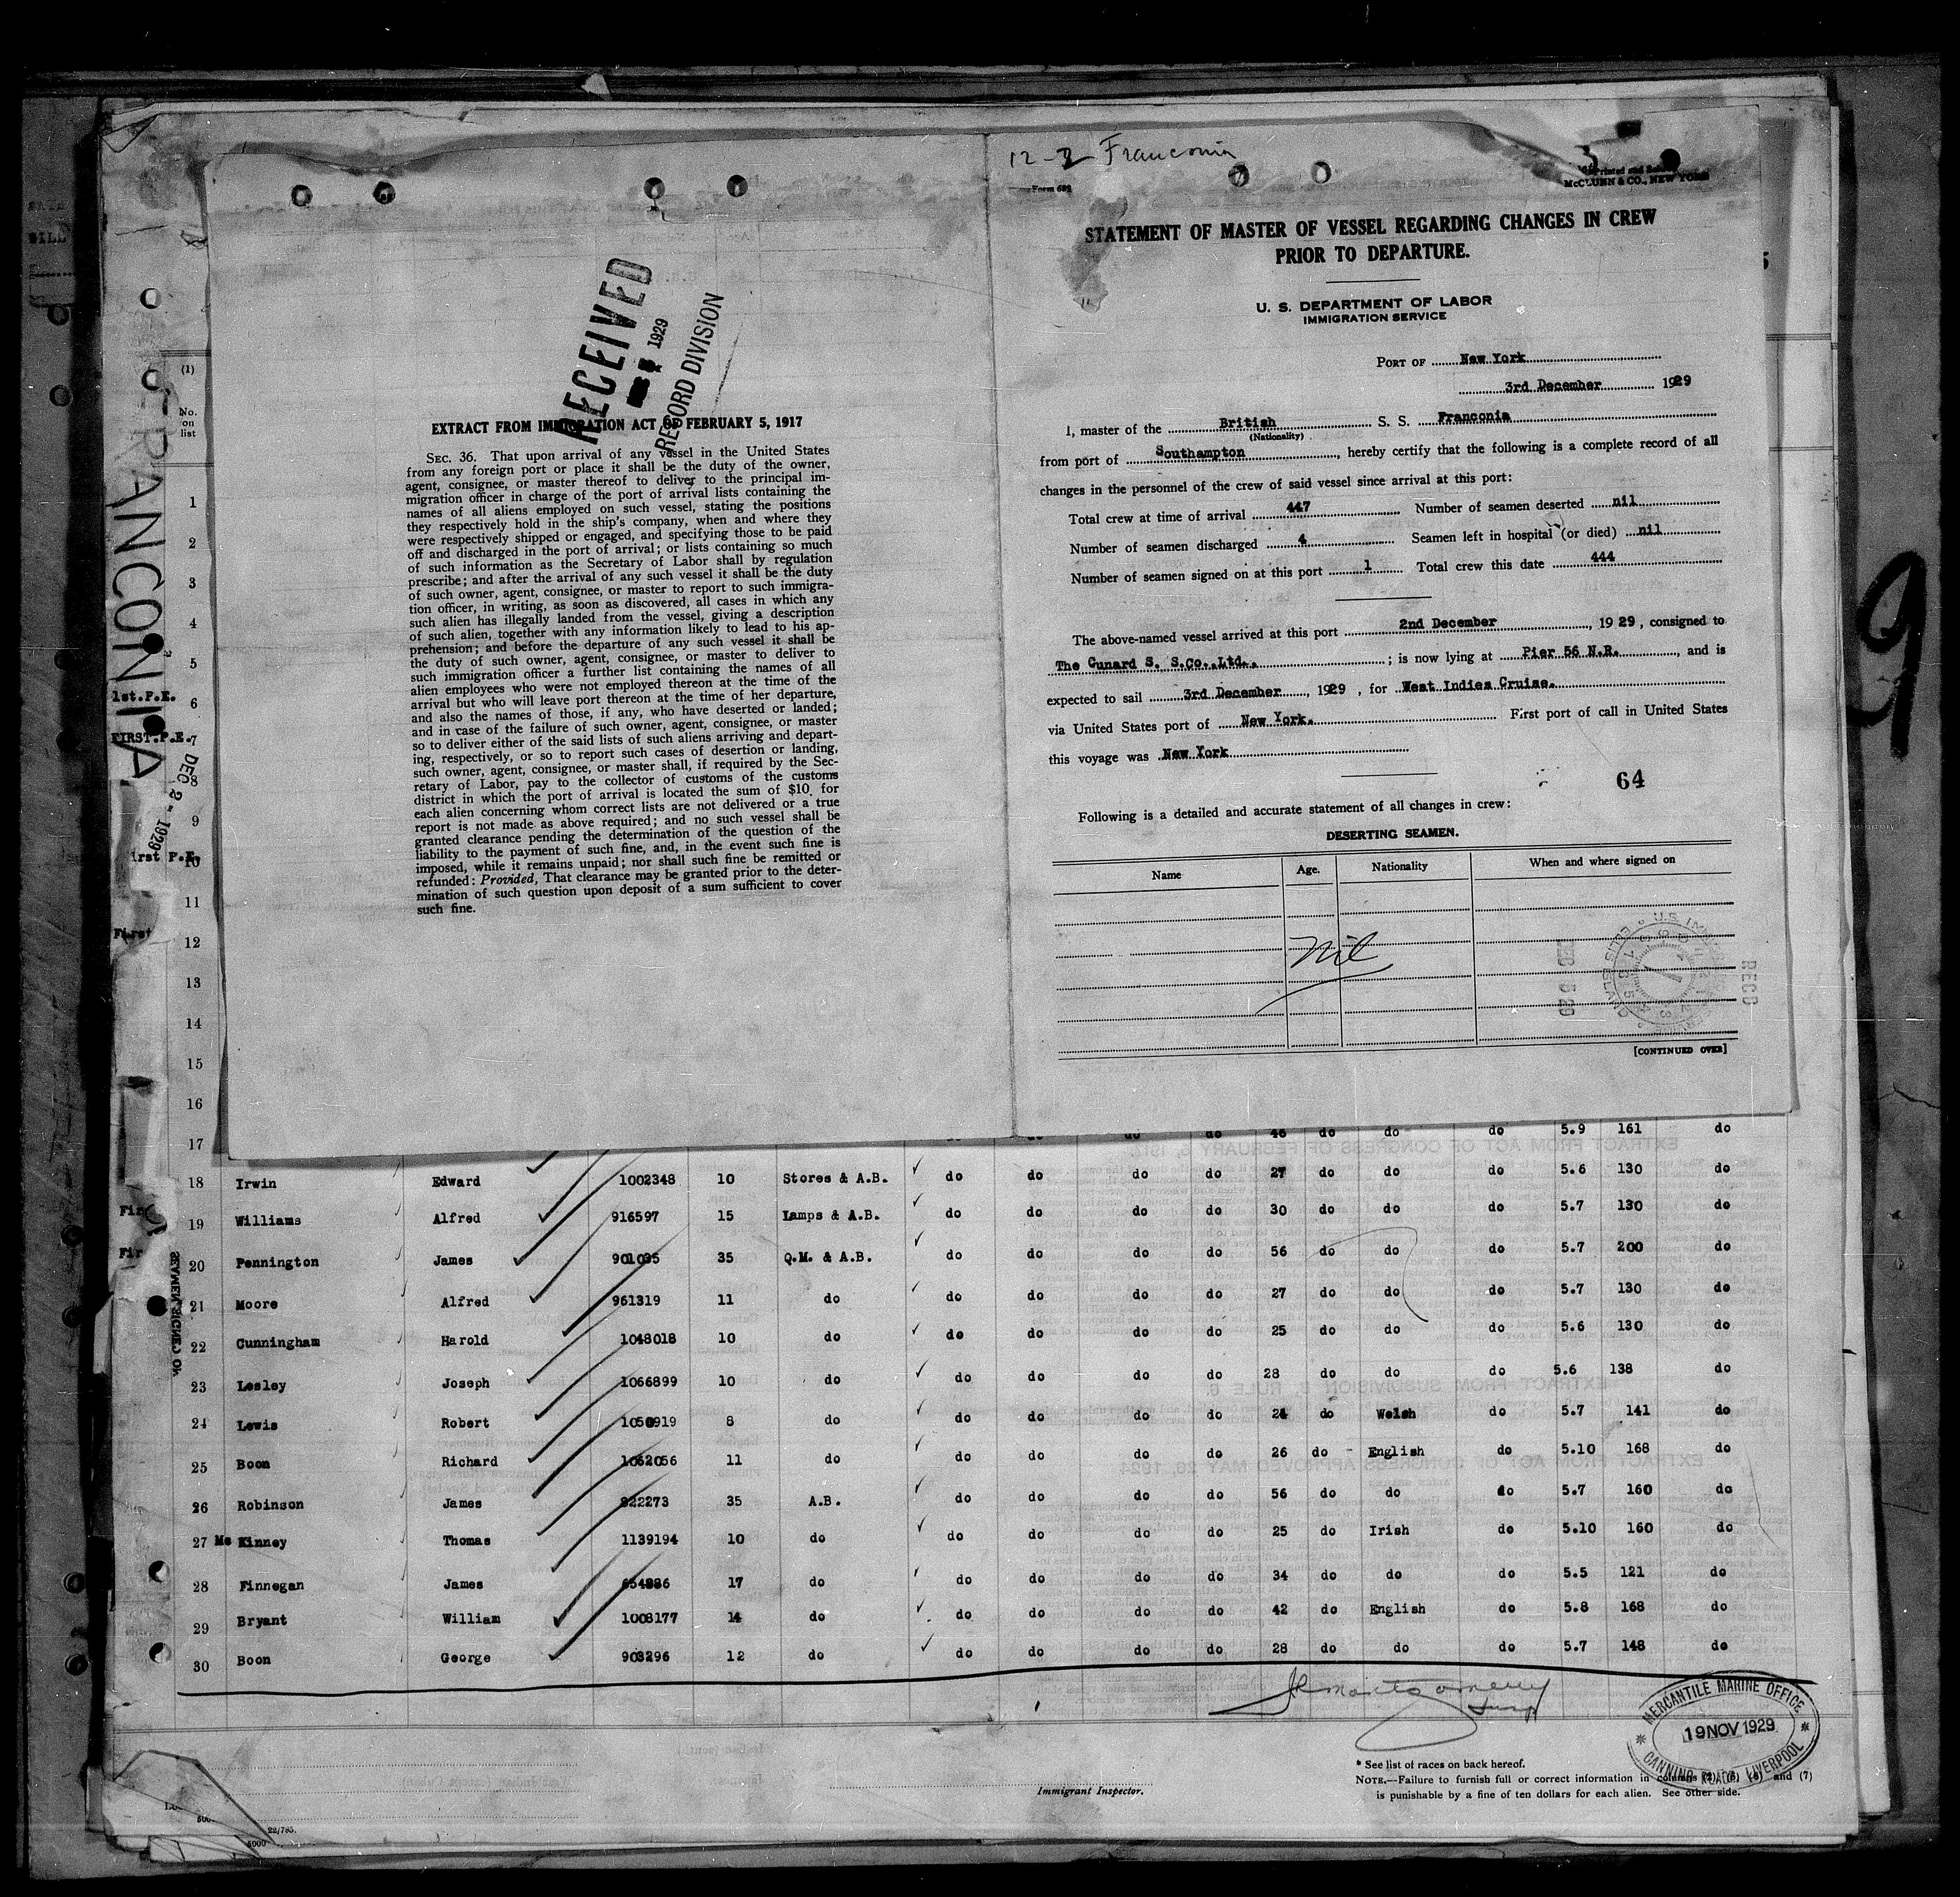 12-2 Franconia
Form 689
Printed and Sold
McCLUNN & CO., NEW YORK
STATEMENT OF MASTER OF VESSEL REGARDING CHANGES IN CREW
PRIOR TO DEPARTURE.
U. S. DEPARTMENT OF LABOR
IMMIGRATION SERVICE
PORT OF New York
3rd December 1929
I, master of the British S. S. Franconia
(Nationality)
from port of Southampton, hereby certify that the following is a complete record of all
changes in the personnel of the crew of said vessel since arrival at this port:
Total crew at time of arrival 447 Number of seamen deserted nil
Number of seamen discharged 4 Seamen left in hospital (or died) nil
Number of seamen signed on at this port 1 Total crew this date 444
The above-named vessel arrived at this port 2nd December, 1929, consigned to
The Cunard S. S.Co.,Ltd., ; is now lying at Pier 56 N.R., and is
expected to sail 3rd December, 1929, for West Indies Cruise.
via United States port of New York. First port of call in United States
this voyage was New York
64
Following is a detailed and accurate statement of all changes in crew:
DESERTING SEAMEN.
Name Age. Nationality When and where signed on
nil
DEC 5 29
RECD
[CONTINUED OVER]
RECEIVED
1929
RECORD DIVISION
EXTRACT FROM IMMIGRATION ACT OF FEBRUARY 5, 1917
SEC. 36. That upon arrival of any vessel in the United States
from any foreign port or place it shall be the duty of the owner,
agent, consignee, or master thereof to deliver to the principal im-
migration officer in charge of the port of arrival lists containing the
names of all aliens employed on such vessel, stating the positions
they respectively hold in the ship's company, when and where they
were respectively shipped or engaged, and specifying those to be paid
off and discharged in the port of arrival; or lists containing so much
of such information as the Secretary of Labor shall by regulation
prescribe; and after the arrival of any such vessel it shall be the duty
of such owner, agent, consignee, or master to report to such immigra-
tion officer, in writing, as soon as discovered, all cases in which any
such alien has illegally landed from the vessel, giving a description
of such alien, together with any information likely to lead to his ap-
prehension; and before the departure of any such vessel it shall be
the duty of such owner, agent, consignee, or master to deliver to
such immigration officer a further list containing the names of all
alien employees who were not employed thereon at the time of the
arrival but who will leave port thereon at the time of her departure,
and also the names of those, if any, who have deserted or landed;
and in case of the failure of such owner, agent, consignee, or master
so to deliver either of the said lists of such aliens arriving and depart-
ing, respectively, or so to report such cases of desertion or landing,
such owner, agent, consignee, or master shall, if required by the Sec-
retary of Labor, pay to the collector of customs of the customs
district in which the port of arrival is located the sum of $10 for
each alien concerning whom correct lists are not delivered or a true
report is not made as above required; and no such vessel shall be
granted clearance pending the determination of the question of the
liability to the payment of such fine, and, in the event such fine is
imposed, while it remains unpaid; nor shall such fine be remitted or
refunded: Provided, That clearance may be granted prior to the deter-
mination of such question upon deposit of a sum sufficient to cover
such fine.
FRANCONIA
DEC 2 - 1929
(1)
No.
on
list
1
2
3
4
5
1st.P.E. 6
FIRST.P.E. 7
8
9
First P.E. 10
11
First 12
13
14
15
16
17 46 do do do 5.9 161 do
18 Irwin Edward 1002348 10 Stores & A.B. do do do do 27 do do do 5.6 130 do
19 Williams Alfred 916597 15 Lamps & A.B. do do do do 30 do do do 5.7 130 do
20 Pennington James 901035 35 Q.M. & A.B. do do do do 56 do do do 5.7 200 do
21 Moore Alfred 961319 11 do do do do do 27 do do do 5.7 130 do
22 Cunningham Harold 1048018 10 do do do do do 25 do do do 5.6 130 do
23 Lesley Joseph 1066899 10 do do do do do 28 do do do 5.6 138 do
24 Lewis Robert 1050919 8 do do do do do 24 do Welsh do 5.7 141 do
25 Boon Richard 1062056 11 do do do do do 26 do English do 5.10 168 do
26 Robinson James 822273 35 A.B. do do do do 56 do do do 5.7 160 do
27 Mc Kinney Thomas 1139194 10 do do do do do 25 do Irish do 5.10 160 do
28 Finnegan James 654886 17 do do do do do 34 do do do 5.5 121 do
29 Bryant William 1008177 14 do do do do do 42 do English do 5.8 168 do
30 Boon George 903296 12 do do do do do 28 do do do 5.7 148 do
MERCANTILE MARINE OFFICE
19 NOV 1929
CANNING ROAD, LIVERPOOL
Immigrant Inspector.
* See list of races on back hereof.
NOTE.—Failure to furnish full or correct information in columns (2), (3), (6) and (7)
is punishable by a fine of ten dollars for each alien. See other side.
22/785.
5000
9